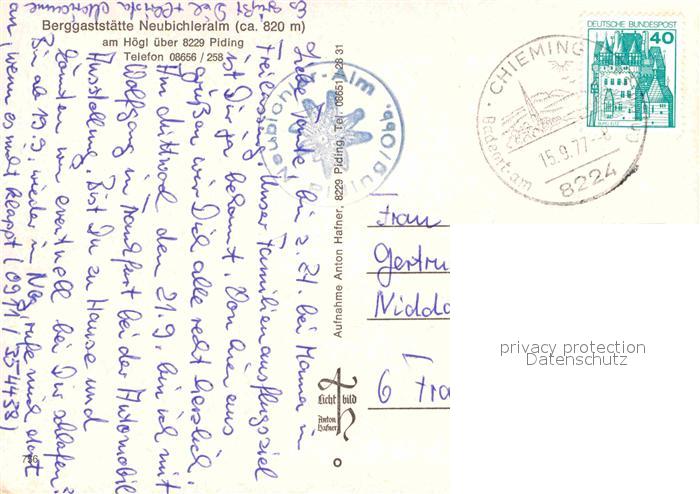 Berggaststätte Neubichleralm (ca. 820 m)
am Högl über 8229 Piding
Telefon 08656 / 258
Liebe Tante, bin z. Zt. bei Mama in
Freilassing. Unser Familienausflugsziel
ist Dir ja bekannt. Von hier aus
grüßen wir Dich alle recht herzlich.
Am Mittwoch den 21.9. bin ich mit
Wolfgang in Frankfurt bei der Automobil
Ausstellung. Bist Du zu Hause und
könnten wir eventuell bei Dir schlafen?
Bin ab 19.9. wieder in rufe mich dort
an, wenn es nicht klappt (0911 / 354438)
Es grüßt Dich
Aufnahme Anton Hafner, 8229 Piding, Tel. 08651 / 28 31
Neubichler-Alm
Licht bild
Anton
Hafner
736
DEUTSCHE BUNDESPOST
40
CHIEMING
15.9.77
Badeort am
8224
Frau
Gertru
Nidda
6 Fra
privacy protection
Datenschutz